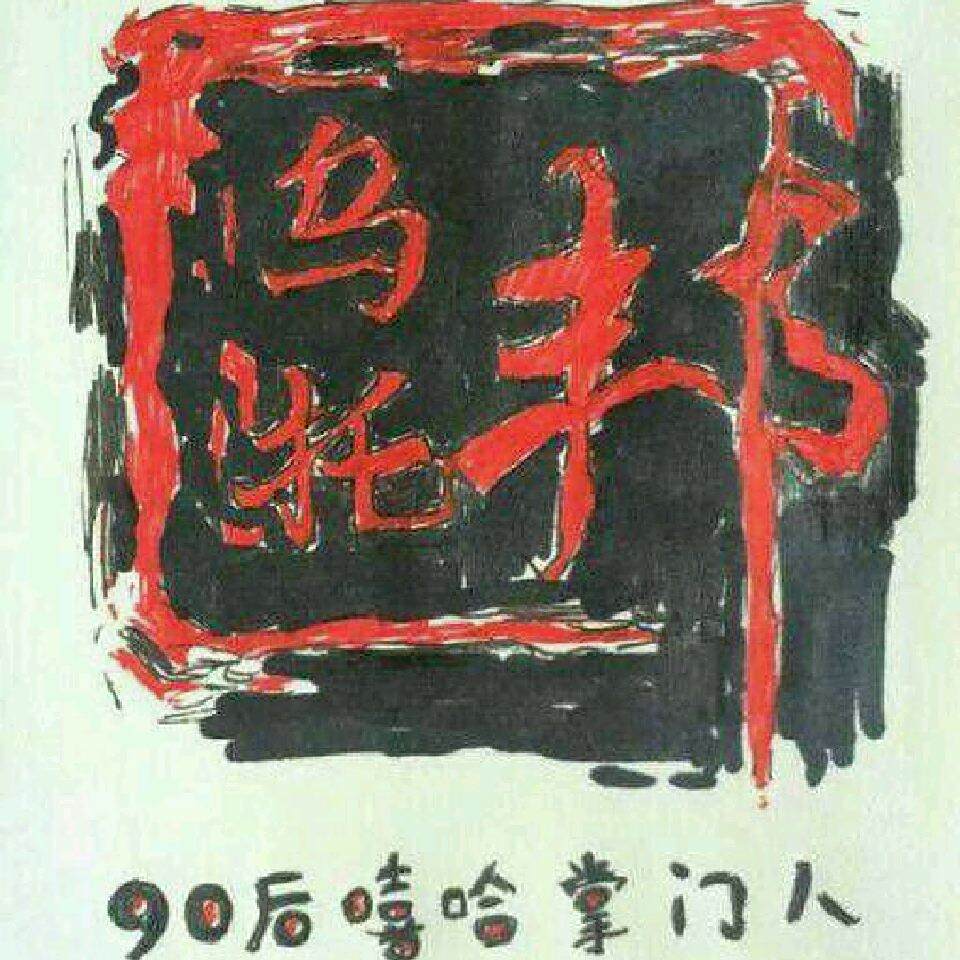 乌托邦
90后嘻哈掌门人